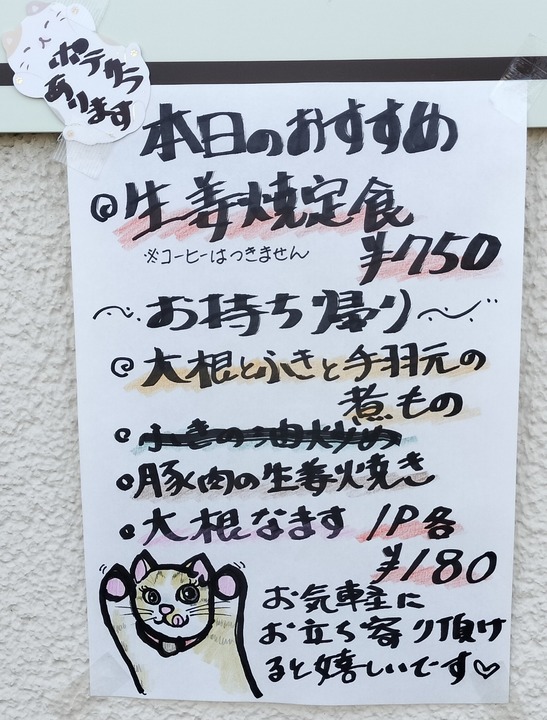 ポテサラ
あります
本日のおすすめ
生姜焼定食
※コーヒーはつきません
¥750
〜お持ち帰り〜
大根とふきと手羽元の
煮もの
ふきの油炒め
豚肉の生姜焼き
大根なます 1P各
¥180
お気軽に
お立ち寄り頂け
ると嬉しいでーす♡